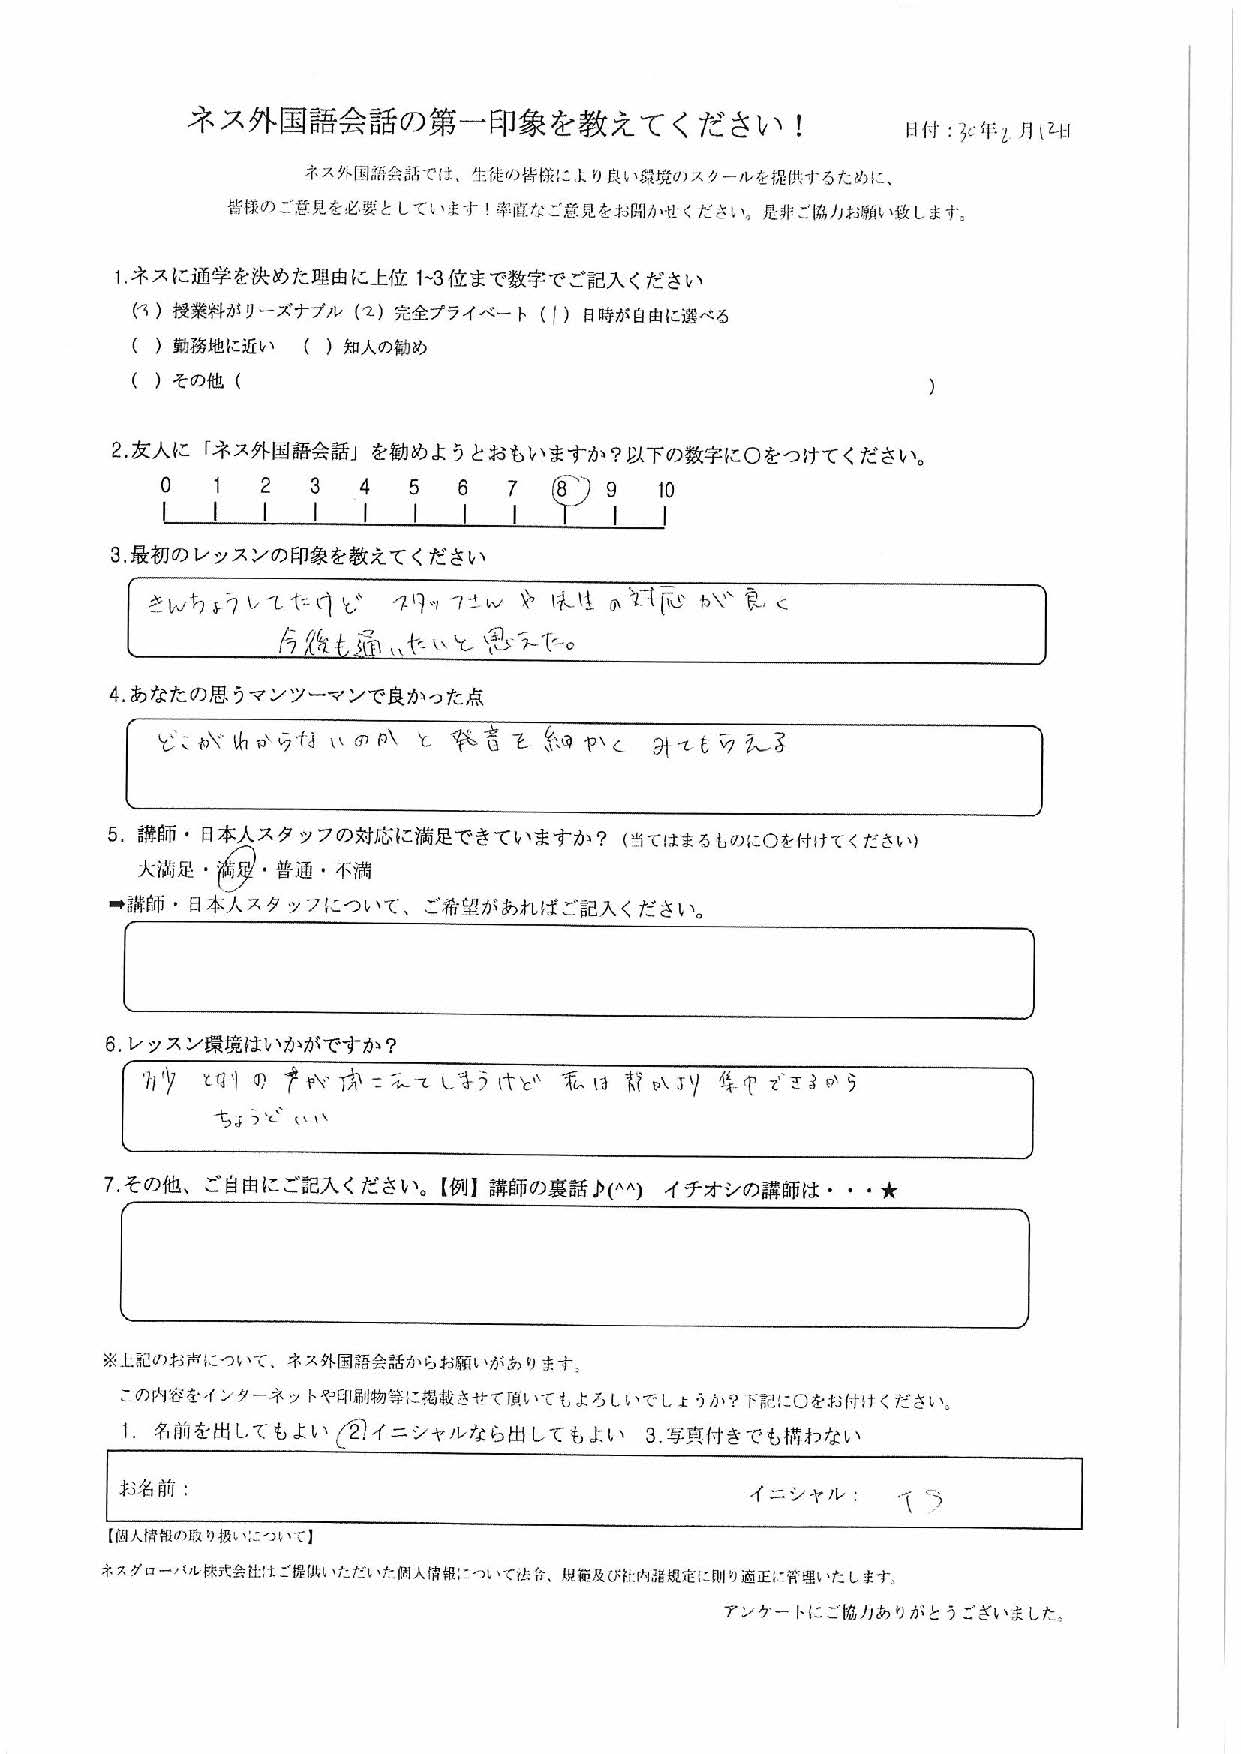 ネス外国語会話の第一印象を教えてください！
日付：30年2月12日
ネス外国語会話では、生徒の皆様により良い環境のスクールを提供するために、
皆様のご意見を必要としています！率直なご意見をお聞かせください。是非ご協力お願い致します。
1.ネスに通学を決めた理由に上位 1~3 位まで数字でご記入ください
（3）授業料がリーズナブル（2）完全プライベート（1）日時が自由に選べる
（ ）勤務地に近い （ ）知人の勧め
（ ）その他（ ）
2.友人に「ネス外国語会話」を勧めようとおもいますか？以下の数字に〇をつけてください。
0 1 2 3 4 5 6 7 8 9 10
3.最初のレッスンの印象を教えてください
きんちょうしてたけど スタッフさんや先生の対応が良く
今後も通いたいと思えた。
4.あなたの思うマンツーマンで良かった点
どこがわからないのかと発音を細かくみてもらえる
5. 講師・日本人スタッフの対応に満足できていますか？（当てはまるものに〇を付けてください）
大満足・満足・普通・不満
➡講師・日本人スタッフについて、ご希望があればご記入ください。
6.レッスン環境はいかがですか？
多少 となりの声が聞こえてしまうけど 私は静かより 集中できるから
ちょうどいい
7.その他、ご自由にご記入ください。【例】講師の裏話♪(^^) イチオシの講師は・・・★
※上記のお声について、ネス外国語会話からお願いがあります。
この内容をインターネットや印刷物等に掲載させて頂いてもよろしいでしょうか？下記に〇をお付けください。
1. 名前を出してもよい 2.イニシャルなら出してもよい 3.写真付きでも構わない
お名前： イニシャル：
【個人情報の取り扱いについて】
ネスグローバル株式会社はご提供いただいた個人情報について法令、規範及び社内諸規定に則り適正に管理いたします。
アンケートにご協力ありがとうございました。